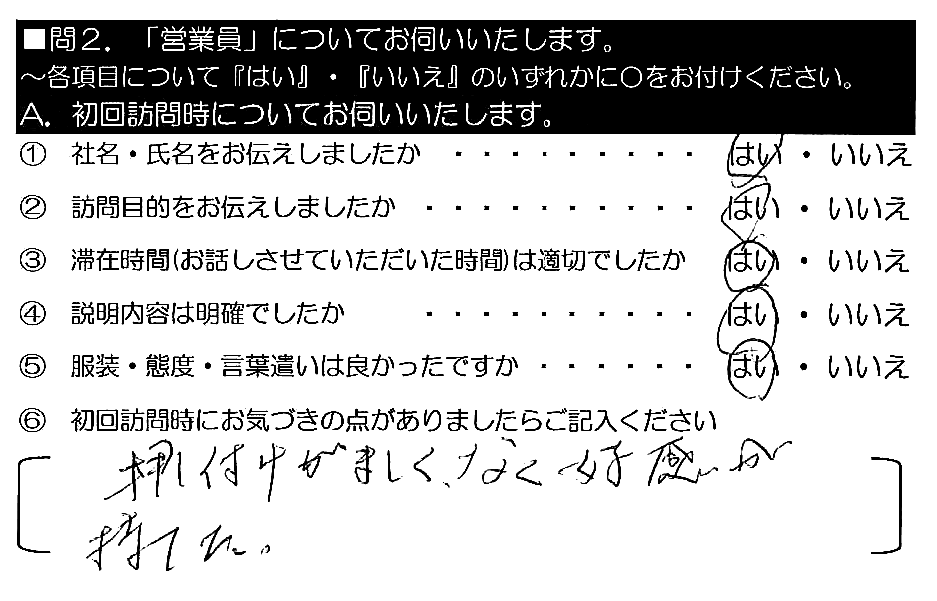 ■問2．「営業員」についてお伺いいたします。
～各項目について『はい』・『いいえ』のいずれかに〇をお付けください。
A．初回訪問時についてお伺いいたします。
① 社名・氏名をお伝えしましたか ・・・・・・・・・・ はい ・ いいえ
② 訪問目的をお伝えしましたか ・・・・・・・・・・・ はい ・ いいえ
③ 滞在時間(お話しさせていただいた時間)は適切でしたか はい ・ いいえ
④ 説明内容は明確でしたか ・・・・・・・・・・・ はい ・ いいえ
⑤ 服装・態度・言葉遣いは良かったですか ・・・・・・ はい ・ いいえ
⑥ 初回訪問時にお気づきの点がありましたらご記入ください
押し付けがましくなく好感が
持てた。